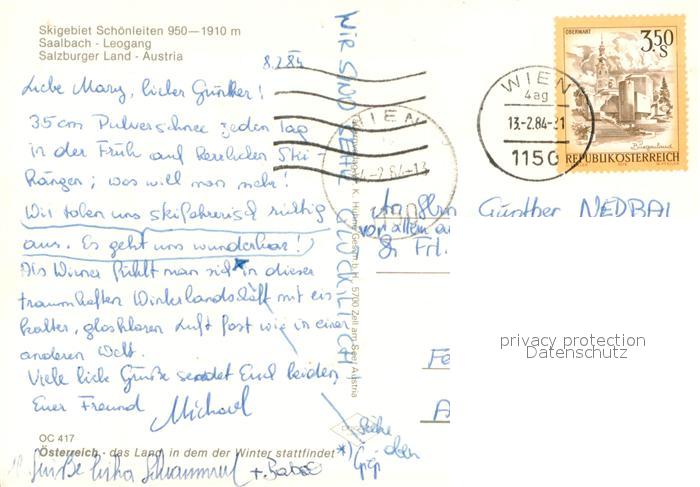 Skigebiet Schönleiten 950—1910 m
Saalbach - Leogang
Salzburger Land - Austria
8.2.84
Liebe Mary, lieber Günther!
35 cm Pulverschnee jeden Tag
in der Früh auf herrlichen Ski-
hängen; was will man mehr!
Wir toben uns skifahrerisch richtig
aus. Es geht uns wunderbar!
Als Wiener fühlt man sich in dieser
traumhaften Winterlandschaft mit eis-
kalter, glasklarer Luft fast wie in einer
anderen Welt.
Viele liebe Grüße sendet Euch beiden
Euer Freund Michael
OC 417
Österreich - das Land, in dem der Winter stattfindet
Grüße + Babsi
WIR SIND SEHR GLÜCKLICH
*) siehe oben
5700 Zell am See/Austria
WIEN
WIEN
4ag
13.-2.84-21
1150
OBERWART
3.50
S
Burgenland
REPUBLIK ÖSTERREICH
An Herrn Günther NEDBAL
vor allem an
Frl.
privacy protection
Datenschutz